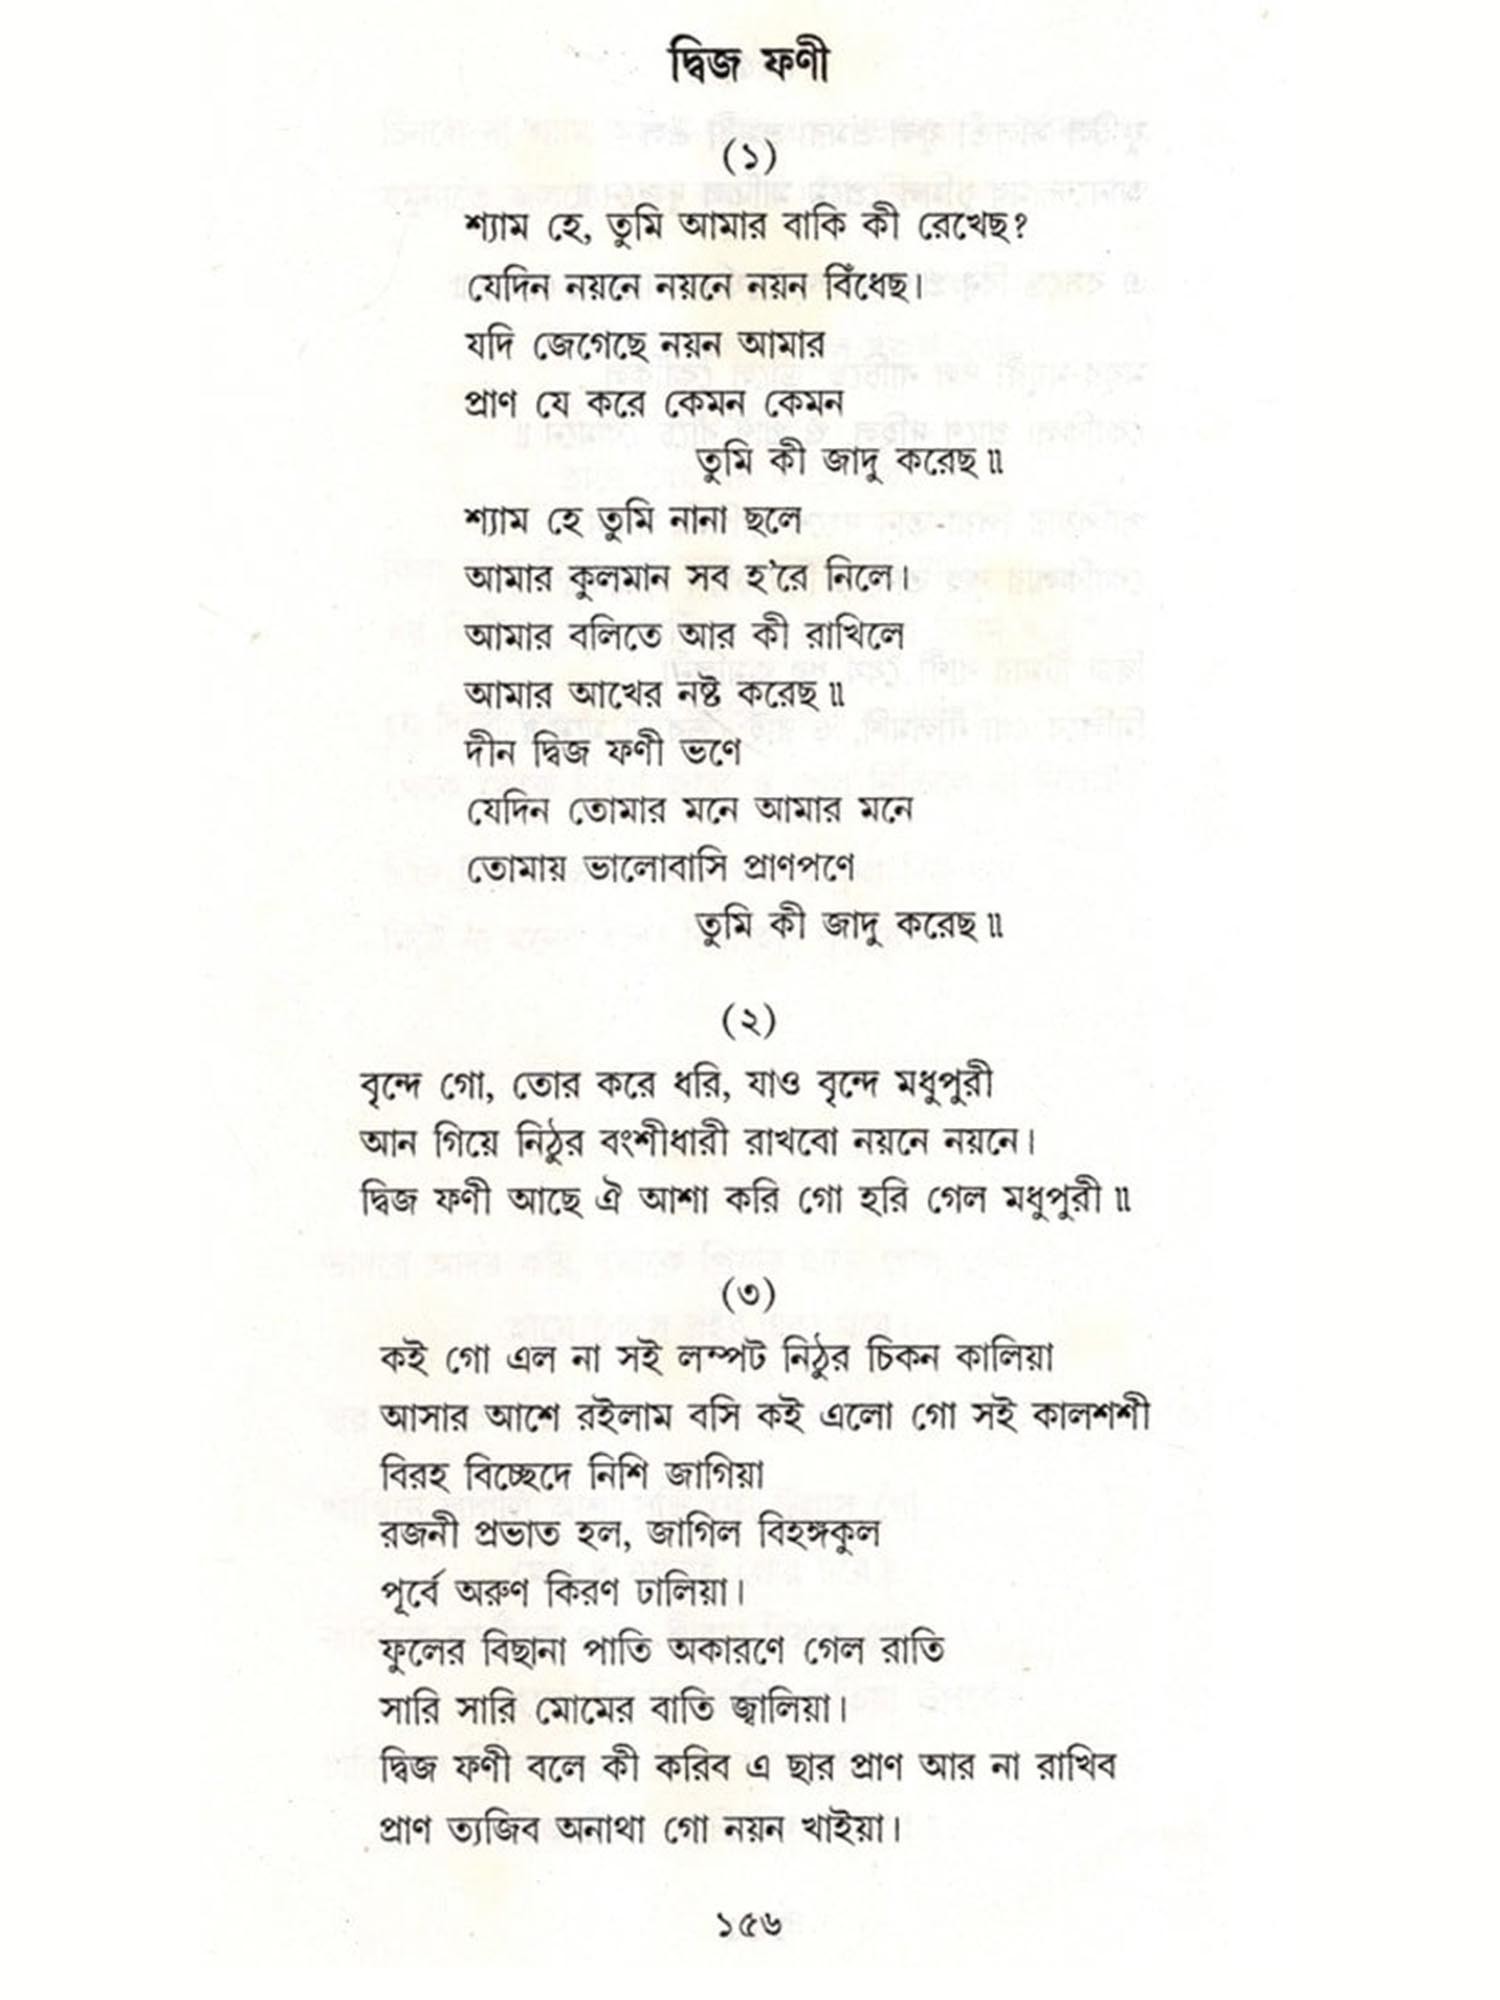 দ্বিজ ফণী
(১)
শ্যাম হে, তুমি আমার বাকি কী রেখেছ?
যেদিন নয়নে নয়নে নয়ন বিঁধেছ।
যদি জেগেছে নয়ন আমার
প্রাণ যে করে কেমন কেমন
তুমি কী জাদু করেছ॥
শ্যাম হে তুমি নানা ছলে
আমার কুলমান সব হ'রে নিলে।
আমার বলিতে আর কী রাখিলে
আমার আখের নষ্ট করেছ॥
দীন দ্বিজ ফণী ভণে
যেদিন তোমার মনে আমার মনে
তোমায় ভালোবাসি প্রাণপণে
তুমি কী জাদু করেছ॥
(২)
বৃন্দে গো, তোর করে ধরি, যাও বৃন্দে মধুপুরী
আন গিয়ে নিঠুর বংশীধারী রাখবো নয়নে নয়নে।
দ্বিজ ফণী আছে ঐ আশা করি গো হরি গেল মধুপুরী॥
(৩)
কই গো এল না সই লম্পট নিঠুর চিকন কালিয়া
আসার আশে রইলাম বসি কই এলো গো সই কালশশী
বিরহ বিচ্ছেদে নিশি জাগিয়া
রজনী প্রভাত হল, জাগিল বিহঙ্গকুল
পূর্বে অরুণ কিরণ ঢালিয়া।
ফুলের বিছানা পাতি অকারণে গেল রাতি
সারি সারি মোমের বাতি জ্বালিয়া।
দ্বিজ ফণী বলে কী করিব এ ছার প্রাণ আর না রাখিব
প্রাণ ত্যজিব অনাথা গো নয়ন খাইয়া।
১৫৬